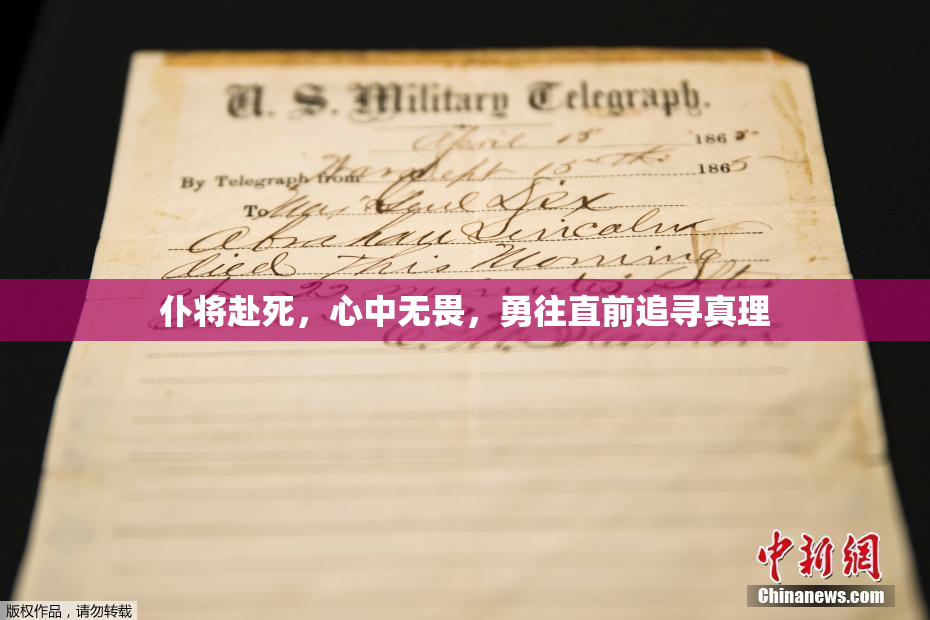 U. S. Military Telegraph.
April 15 1865
By Telegraph from War Dept 15th 1865
To Maj Genl Dix
Abraham Lincoln
died This Morning
at 22 minutes after
仆将赴死，心中无畏，勇往直前追寻真理
E. M. Stanton
中新网
Chinanews.com
版权作品，请勿转载